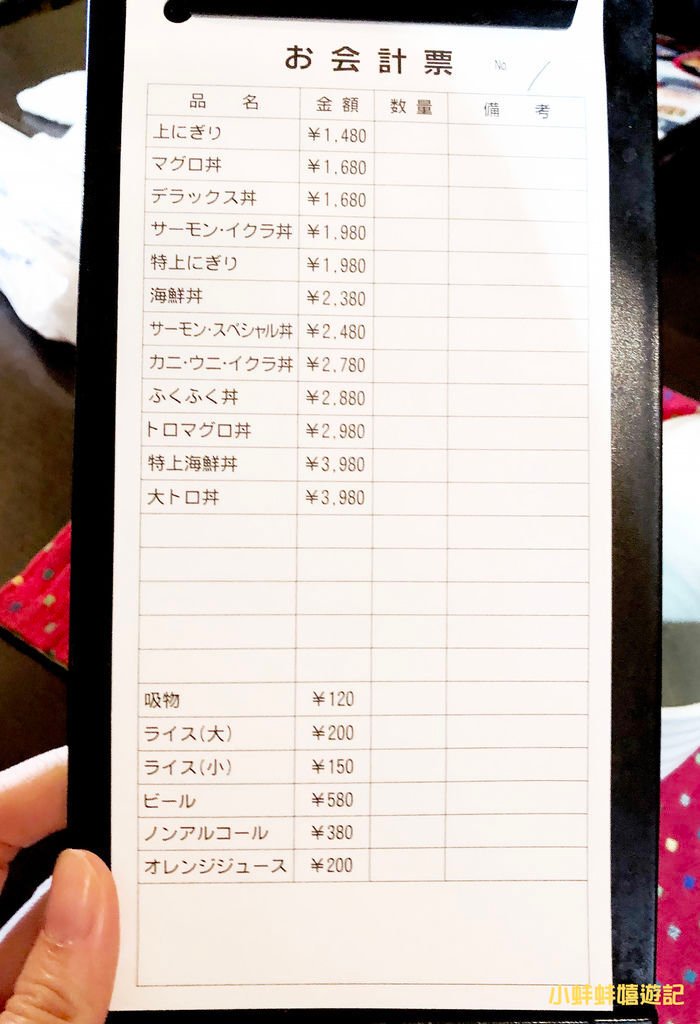 お会計票 No /
品名 金額 数量 備考
上にぎり ¥1,480
マグロ丼 ¥1,680
デラックス丼 ¥1,680
サーモン・イクラ丼 ¥1,980
特上にぎり ¥1,980
海鮮丼 ¥2,380
サーモン・スペシャル丼 ¥2,480
カニ・ウニ・イクラ丼 ¥2,780
ふくふく丼 ¥2,880
トロマグロ丼 ¥2,980
特上海鮮丼 ¥3,980
大トロ丼 ¥3,980
吸物 ¥120
ライス(大) ¥200
ライス(小) ¥150
ビール ¥580
ノンアルコール ¥380
オレンジジュース ¥200
小蚌蚌嬉遊記